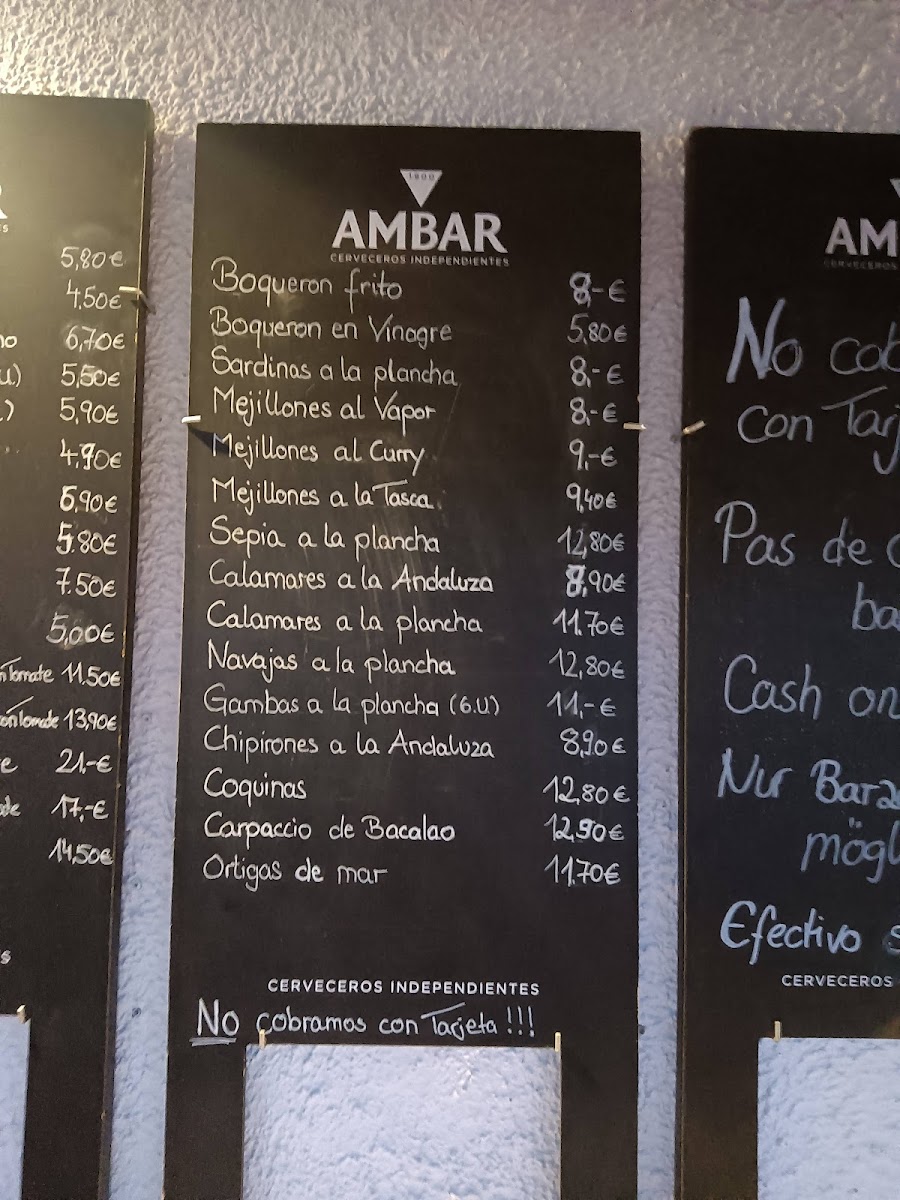 R
S
5,80€
4,50€
no 6,70€
u) 5,50€
.) 5,90€
4,90€
6.90€
5.80€
7.50€
5,00€
nTomate 11.50€
conTomate 13,90€
e 21,-€
ate 17,-€
14,50€
s
1900
AMBAR
CERVECEROS INDEPENDIENTES
Boqueron frito 8,-€
Boqueron en Vinagre 5,80€
Sardinas a la plancha 8,-€
Mejillones al Vapor 8,-€
Mejillones al Curry 9,-€
Mejillones a la Tasca 9,40€
Sepia a la plancha 12,80€
Calamares a la Andaluza 8,90€
Calamares a la plancha 11.70€
Navajas a la plancha 12,80€
Gambas a la plancha (6.U) 11,-€
Chipirones a la Andaluza 8,90€
Coquinas 12,80€
Carpaccio de Bacalao 12,90€
Ortigas de mar 11.70€
CERVECEROS INDEPENDIENTES
No cobramos con Tarjeta !!!
AM
CERVECEROS
No cob
con Tarj
Pas de c
ba
Cash on
Nur Bar
mögl
Efectivo s
CERVECEROS